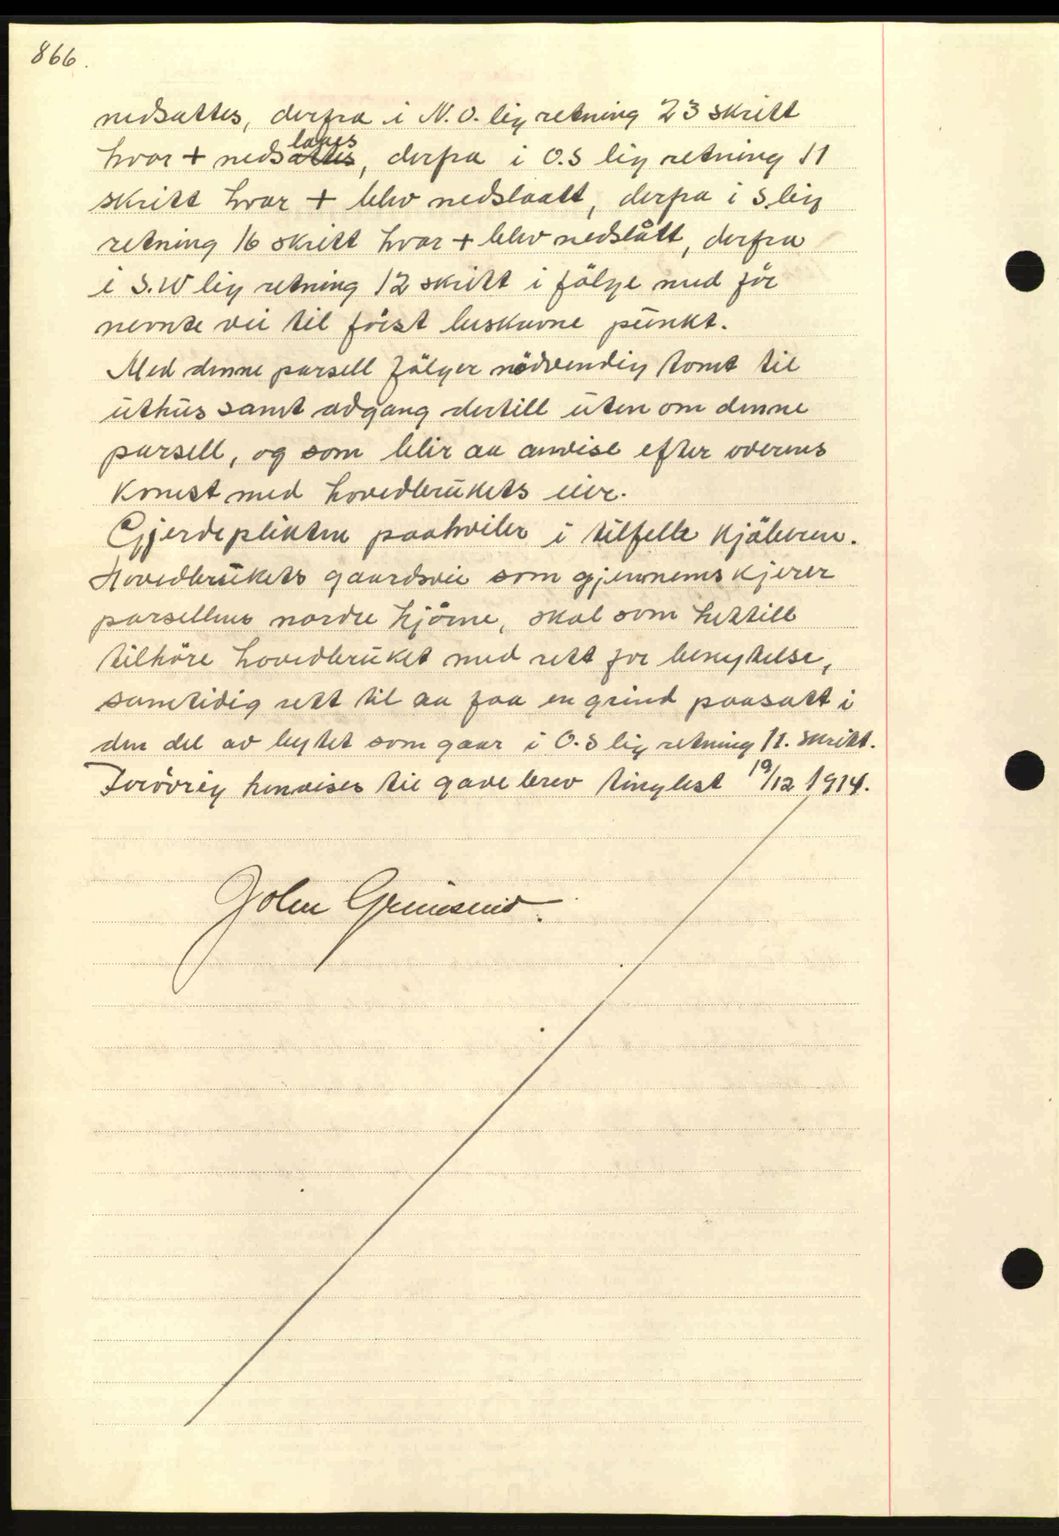 866.
nedsattes, derfra i N.O. lig retning 23 skritt
hvor + nedslaaes, derfra i O.S lig retning 11
skritt hvor + blev nedslaatt, derfra i S lig
retning 16 skritt hvor + blev nedslått, derfra
i S.W lig retning 12 skritt i fölge med för
nevnte vei til först beskrevne punkt.
Med denne parsell fölger nödvendig tomt til
uthus samt adgang dertill uten om denne
parsell, og som blir aa anvise efter overens
komst med hovedbrukets eier.
Gjerdeplikten paahviler i tilfelle kjöberen.
Hovedbrukets gaardsvei som gjennemskjerer
parsellens nordre hjörne, skal som hittill
tilhöre hovedbruket med rett for benyttelse,
samtidig rett til aa faa en grind paasatt i
den del av bytet som gaar i O.S lig retning 11. skritt.
Forövrig henvises til gavebrev tinglest 19/12 1914.
John